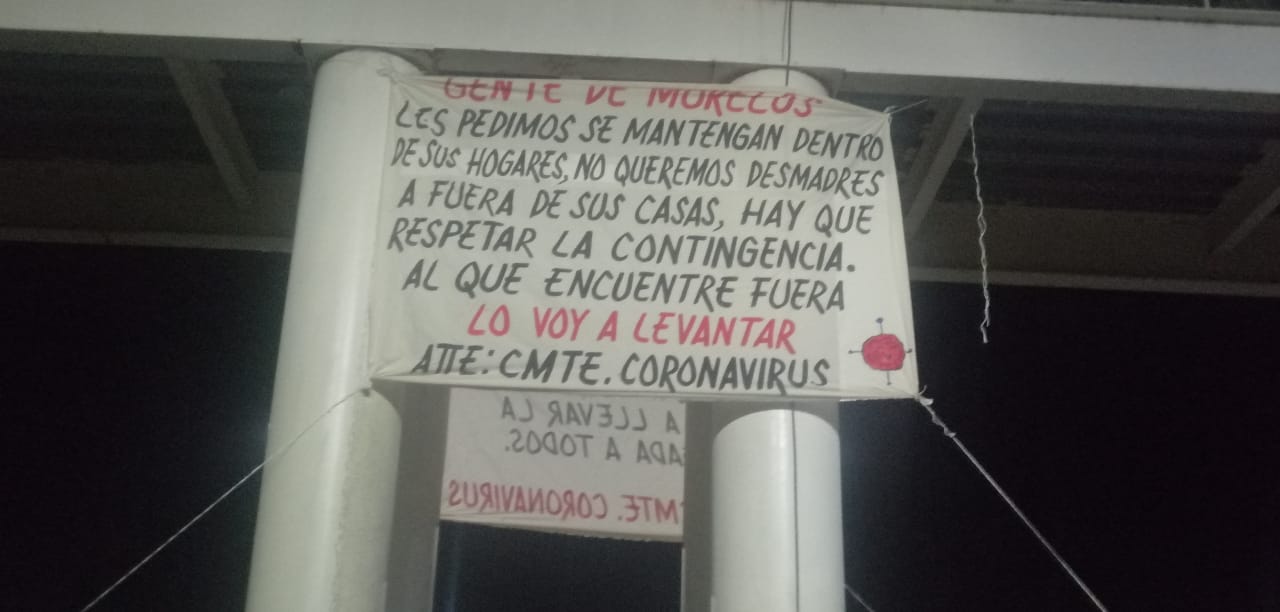 GENTE DE MORELOS
LES PEDIMOS SE MANTENGAN DENTRO
DE SUS HOGARES, NO QUEREMOS DESMADRES
A FUERA DE SUS CASAS, HAY QUE
RESPETAR LA CONTINGENCIA.
AL QUE ENCUENTRE FUERA
LO VOY A LEVANTAR
ATTE: CMTE. CORONAVIRUS
A LLEVAR LA
A TODOS.
CORONAVIRUS